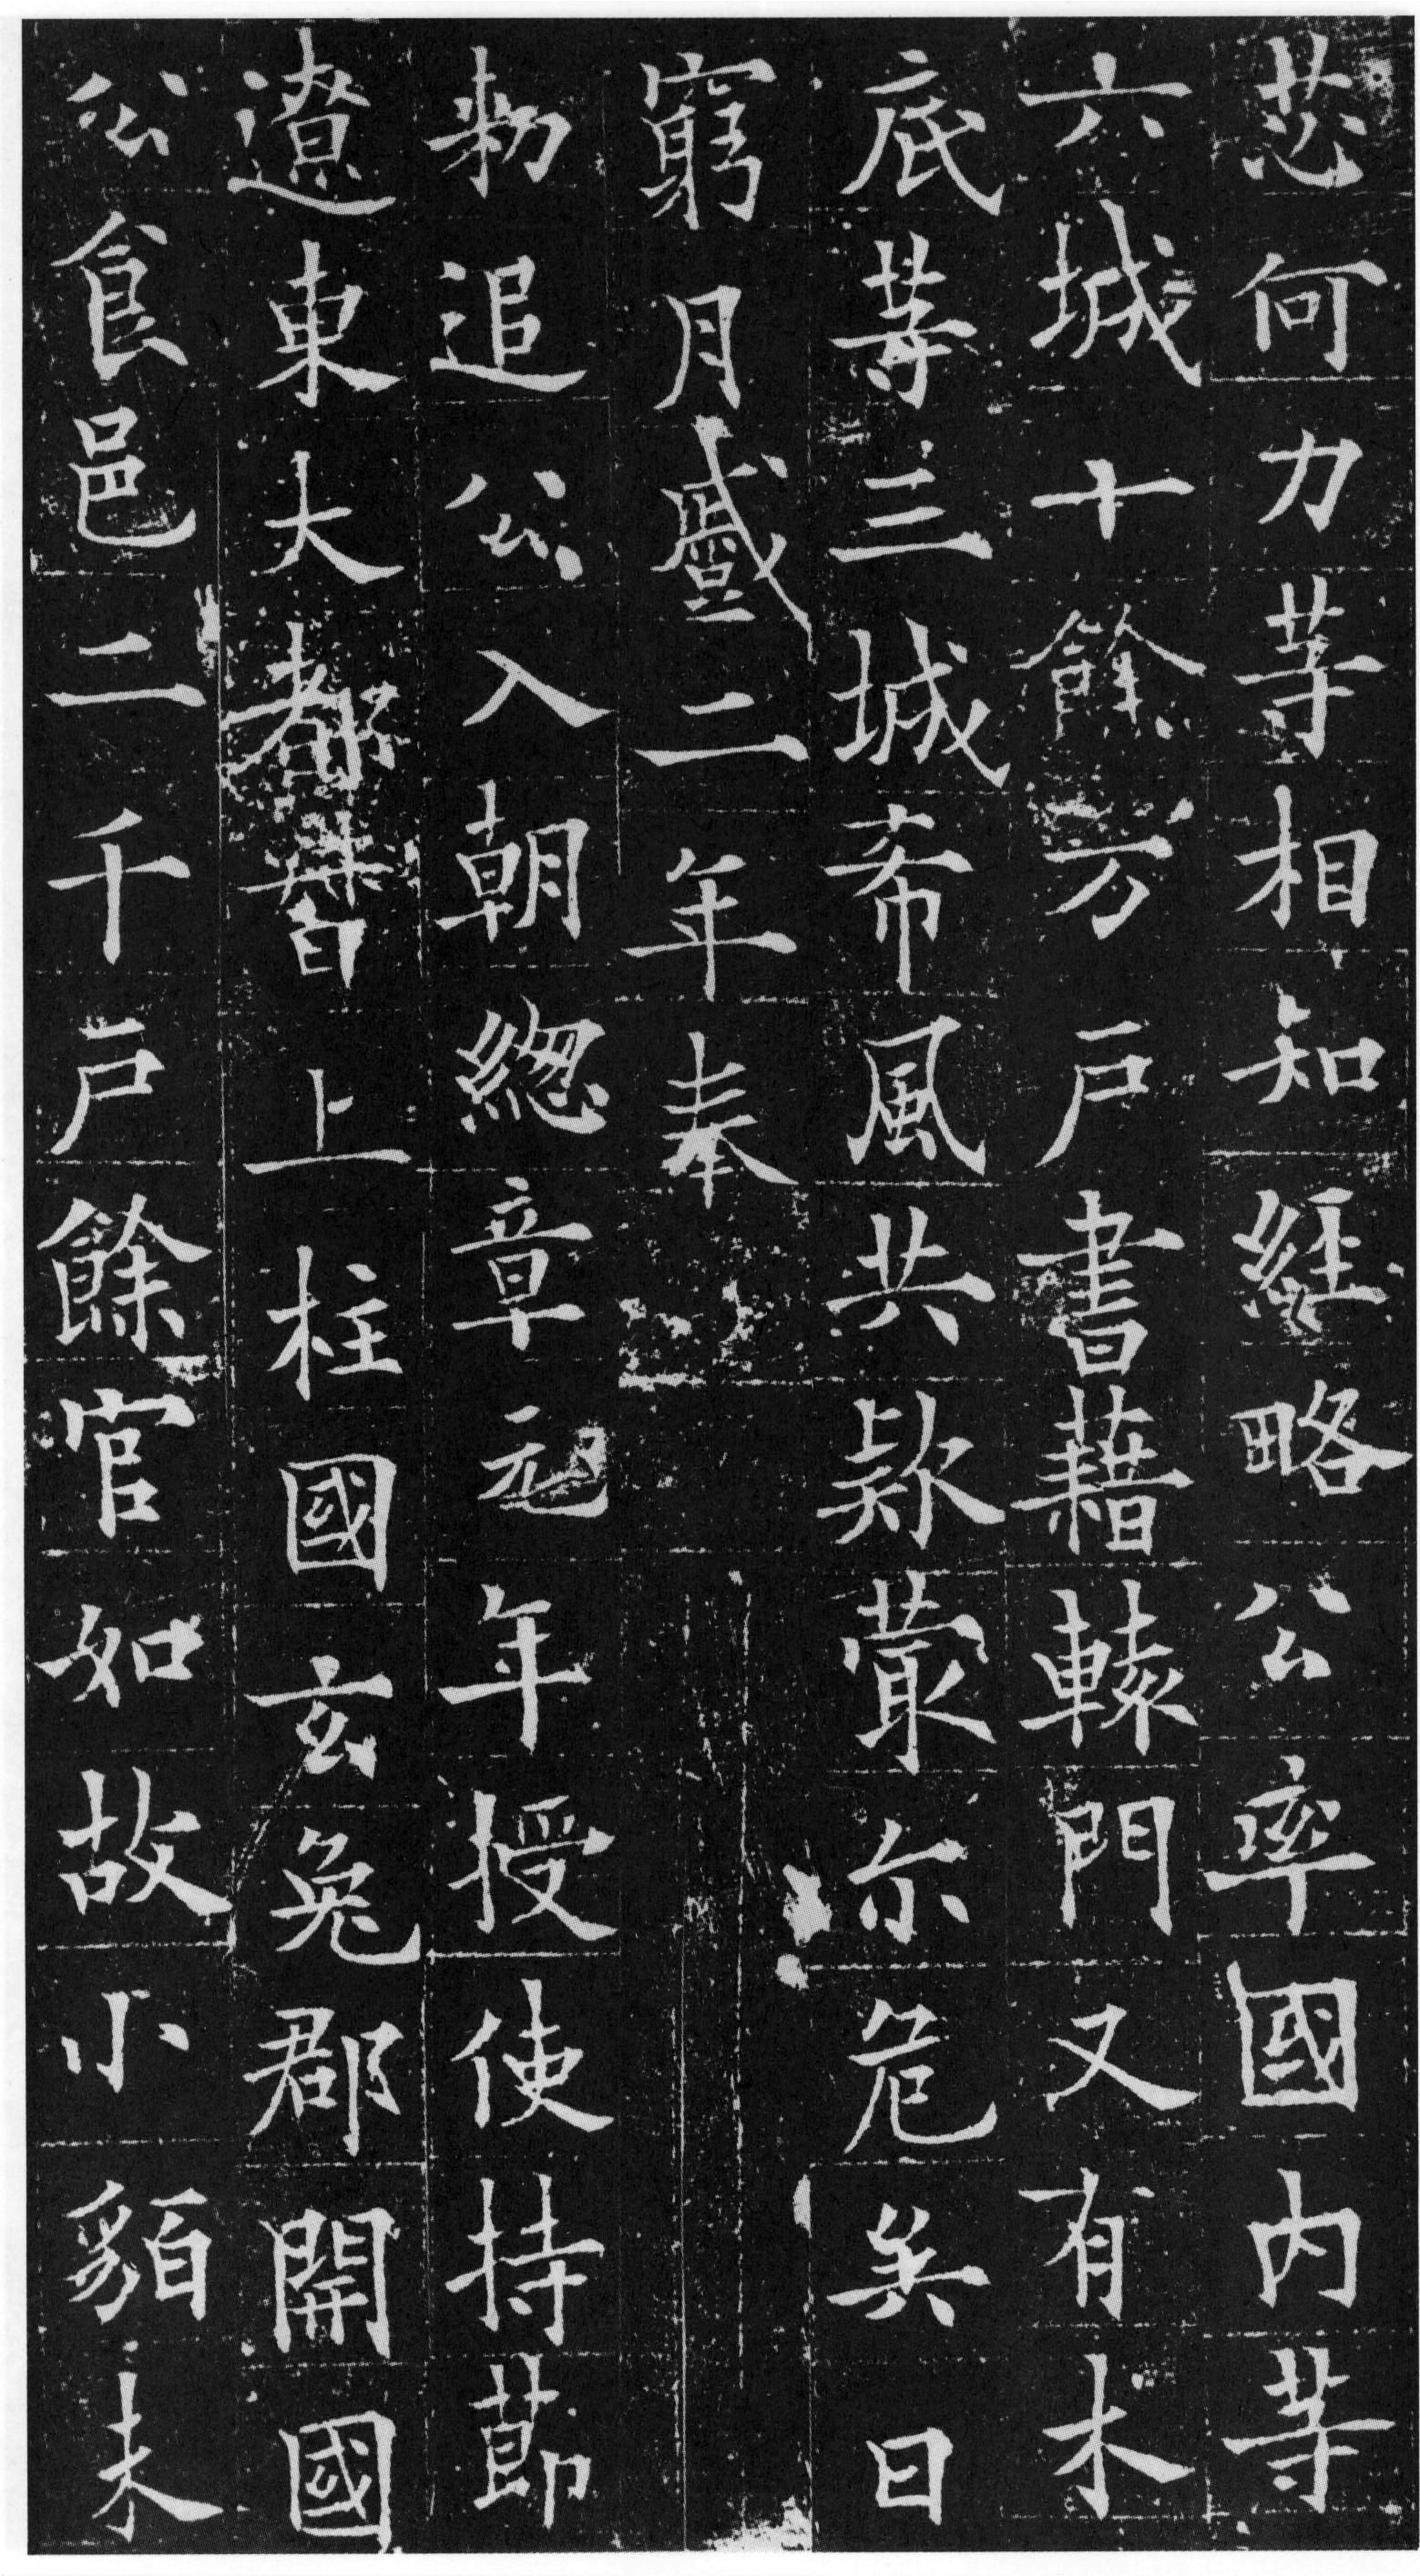 苾何力等相知經略公率國内等
六城十餘万戶書藉轅門又有木
底等三城希風共款蕞尒危矣日
窮月蹙二年奉
勑追公入朝緫章元年授使持節
遼東大都督上柱國玄兔郡開國
公食邑二千戶餘官如故小貊未